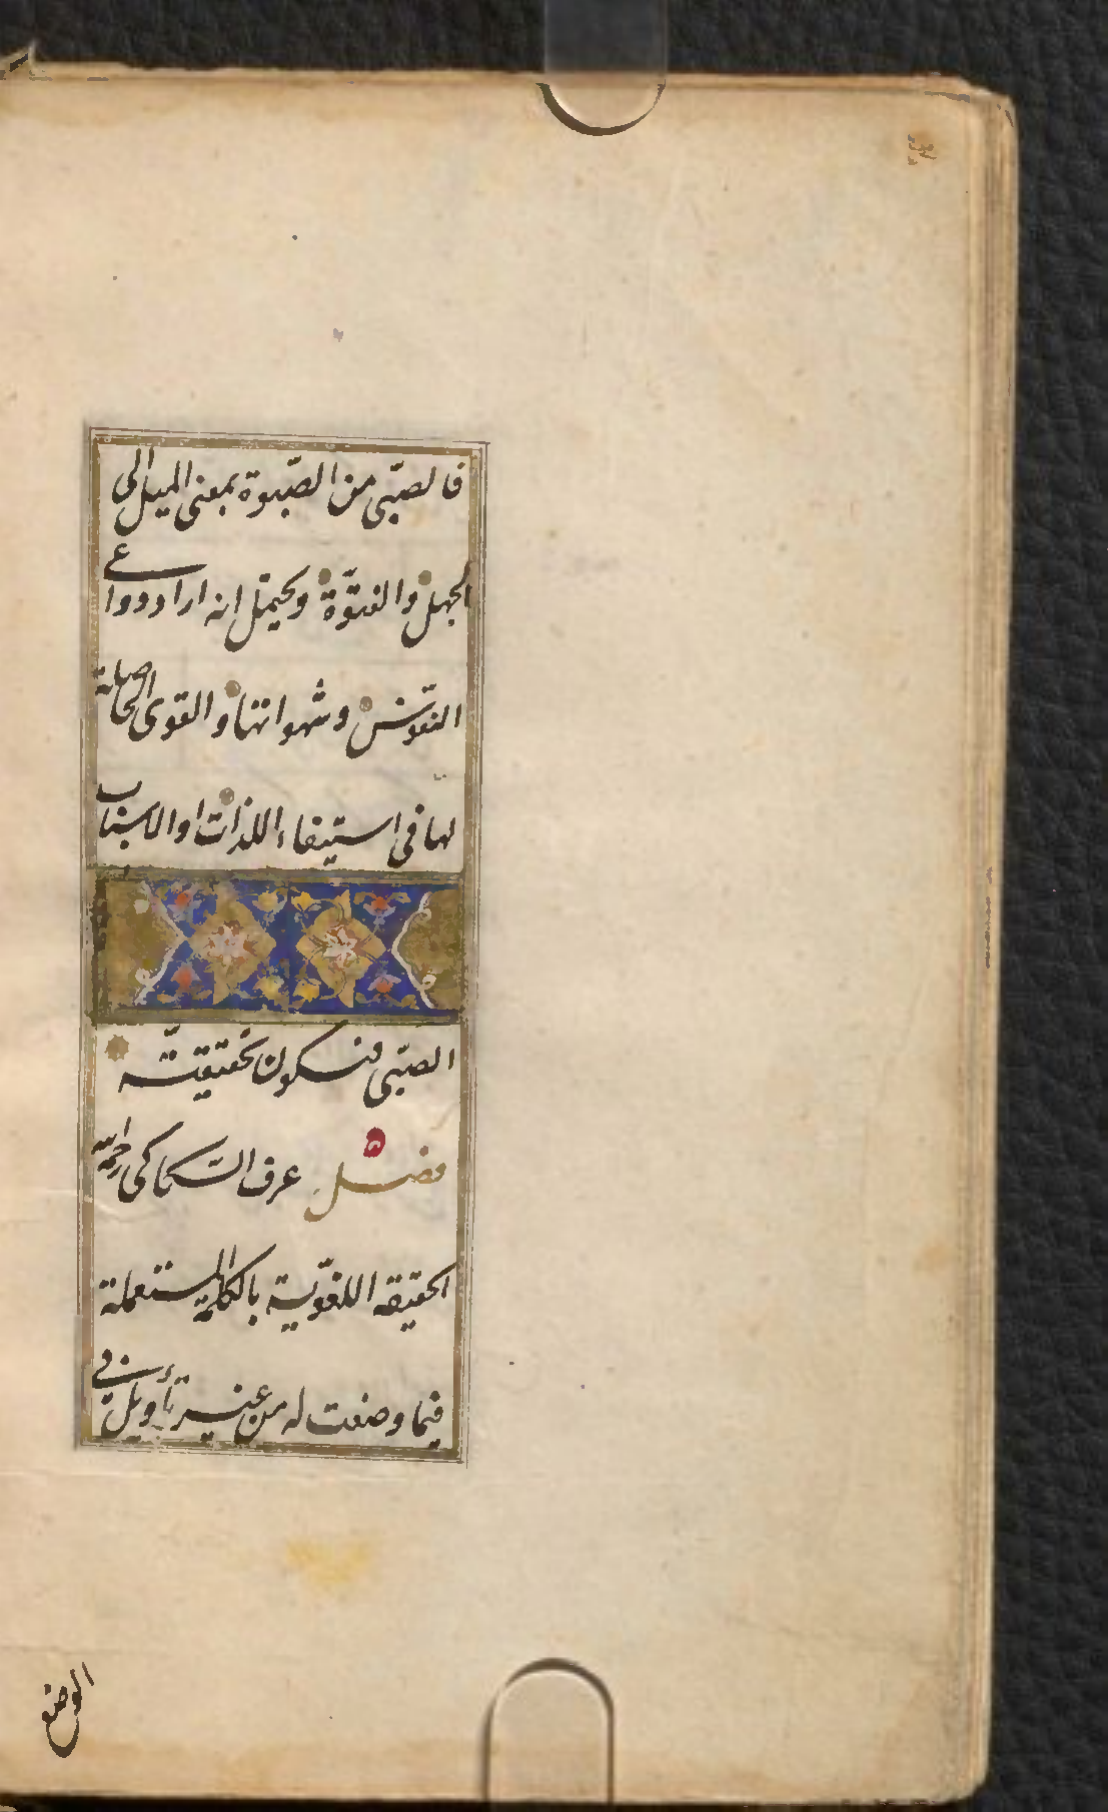 فالصّبى من الصّبوة بمعنى الميل الى
الجهل والفتوّة ويحتمل انه اراد دواعى
النفوس وشهواتها والقوى الحاصلة
لها فى استيفاء اللذات او الاسباب
الصّبى فيكون تحقيقيّة
فصل عرف السّكاكى رحمه الله
الحقيقه اللغويّة بالكلمة المستعملة
فيما وضعت له من غير تأويل فى
الوضع